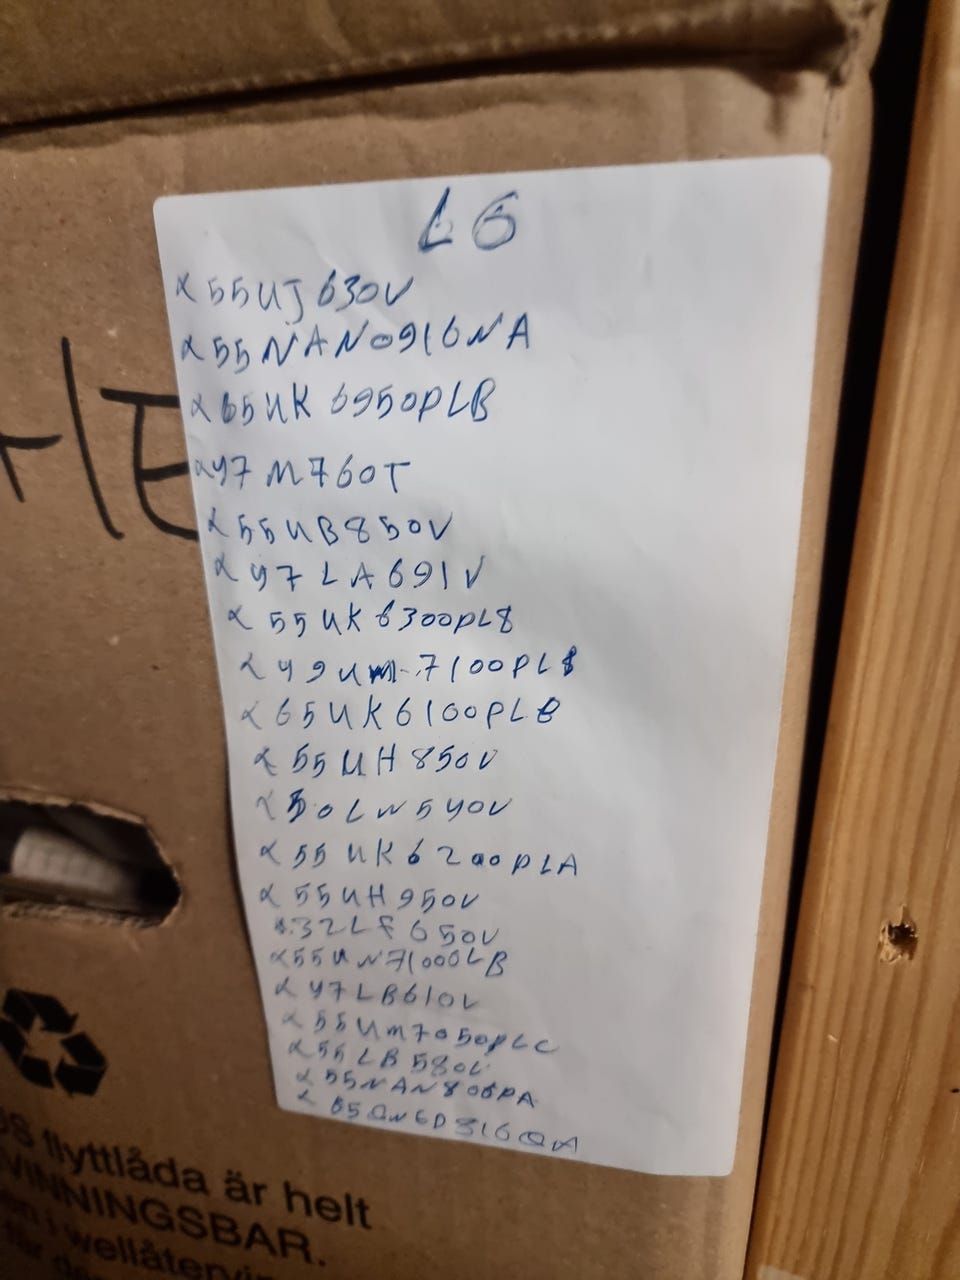 LG
x 55UJ630V
x 55NANO916NA
x 65UK6950PLB
x 47M760T
x 55UB850V
x 47LA691V
x 55UK6300PLB
x 49UM7100PLB
x 65UK6100PLB
x 55UH850V
x 50LN540V
x 55UK6200PLA
x 55UH950V
x 32LF650V
x 55UN7100OLB
x 47LB610V
x 55UM7050PLC
x 55LB580V
x 55NAN806PA
HE
flyttlåda är helt
VINNINGSBAR.